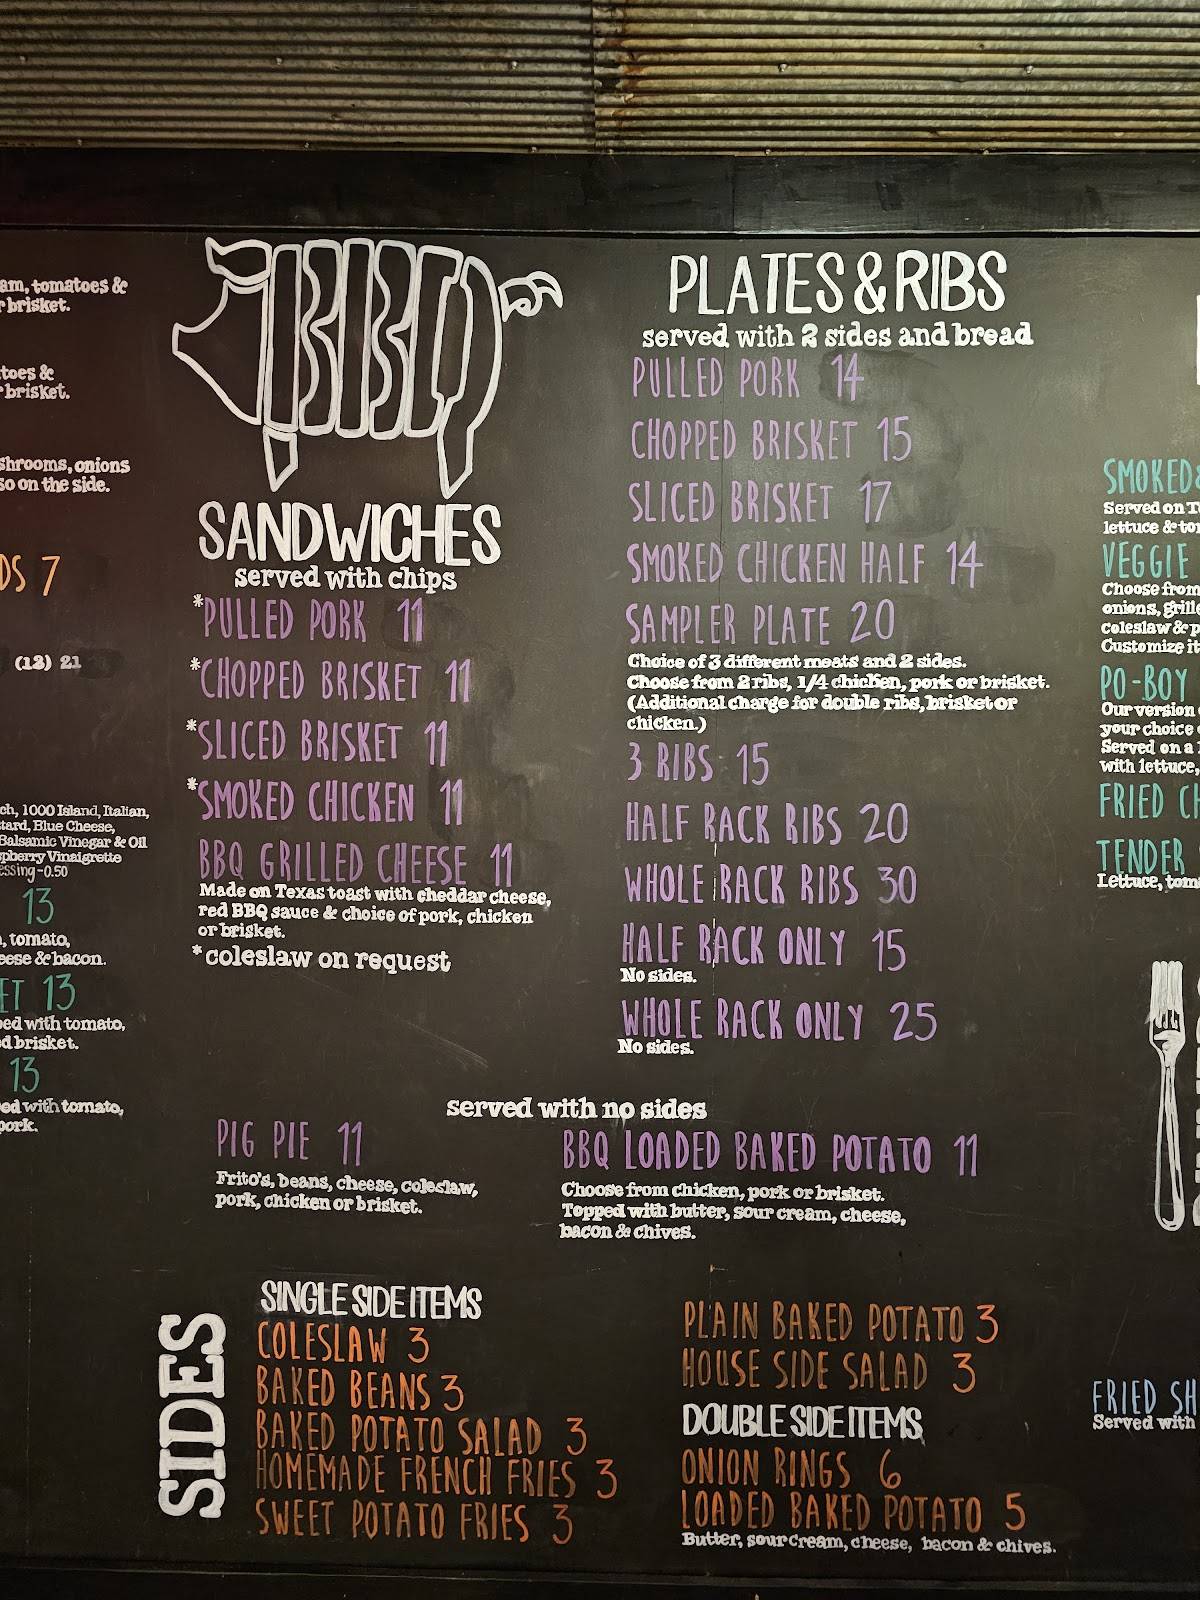 am, tomatoes &
brisket.
toes &
brisket.
shrooms, onions
so on the side.
DS 7
(12) 21
ch, 1000 Island, Italian,
tard, Blue Cheese,
Balsamic Vinegar & Oil
pberry Vinaigrette
essing-0.50
13
, tomato,
eese & bacon.
ET 13
ped with tomato,
d brisket.
13
ed with tomato,
pork.
BBQ
SANDWICHES
served with chips
*PULLED PORK 11
*CHOPPED BRISKET 11
*SLICED BRISKET 11
*SMOKED CHICKEN 11
BBQ GRILLED CHEESE 11
Made on Texas toast with cheddar cheese,
red BBQ sauce & choice of pork, chicken
or brisket.
*coleslaw on request
PLATES & RIBS
served with 2 sides and bread
PULLED PORK 14
CHOPPED BRISKET 15
SLICED BRISKET 17
SMOKED CHICKEN HALF 14
SAMPLER PLATE 20
Choice of 3 different meats and 2 sides.
Choose from 2 ribs, 1/4 chicken, pork or brisket.
(Additional charge for double ribs, brisket or
chicken.)
3 RIBS 15
HALF RACK RIBS 20
WHOLE RACK RIBS 30
HALF RACK ONLY 15
No sides.
WHOLE RACK ONLY 25
No sides.
served with no sides
PIG PIE 11
Frito's, beans, cheese, coleslaw,
pork, chicken or brisket.
BBQ LOADED BAKED POTATO 11
Choose from chicken, pork or brisket.
Topped with butter, sour cream, cheese,
bacon & chives.
SIDES
SINGLE SIDE ITEMS
COLESLAW 3
BAKED BEANS 3
BAKED POTATO SALAD 3
HOMEMADE FRENCH FRIES 3
SWEET POTATO FRIES 3
PLAIN BAKED POTATO 3
HOUSE SIDE SALAD 3
DOUBLE SIDE ITEMS
ONION RINGS 6
LOADED BAKED POTATO 5
Butter, sour cream, cheese, bacon & chives.
SMOKED
Served on T
lettuce & to
VEGGIE
Choose from
onions, grille
coleslaw & p
Customize it
PO-BOY
Our version
your choice
Served on a
with lettuce,
FRIED CH
TENDER
Lettuce, tom
FRIED SH
Served with